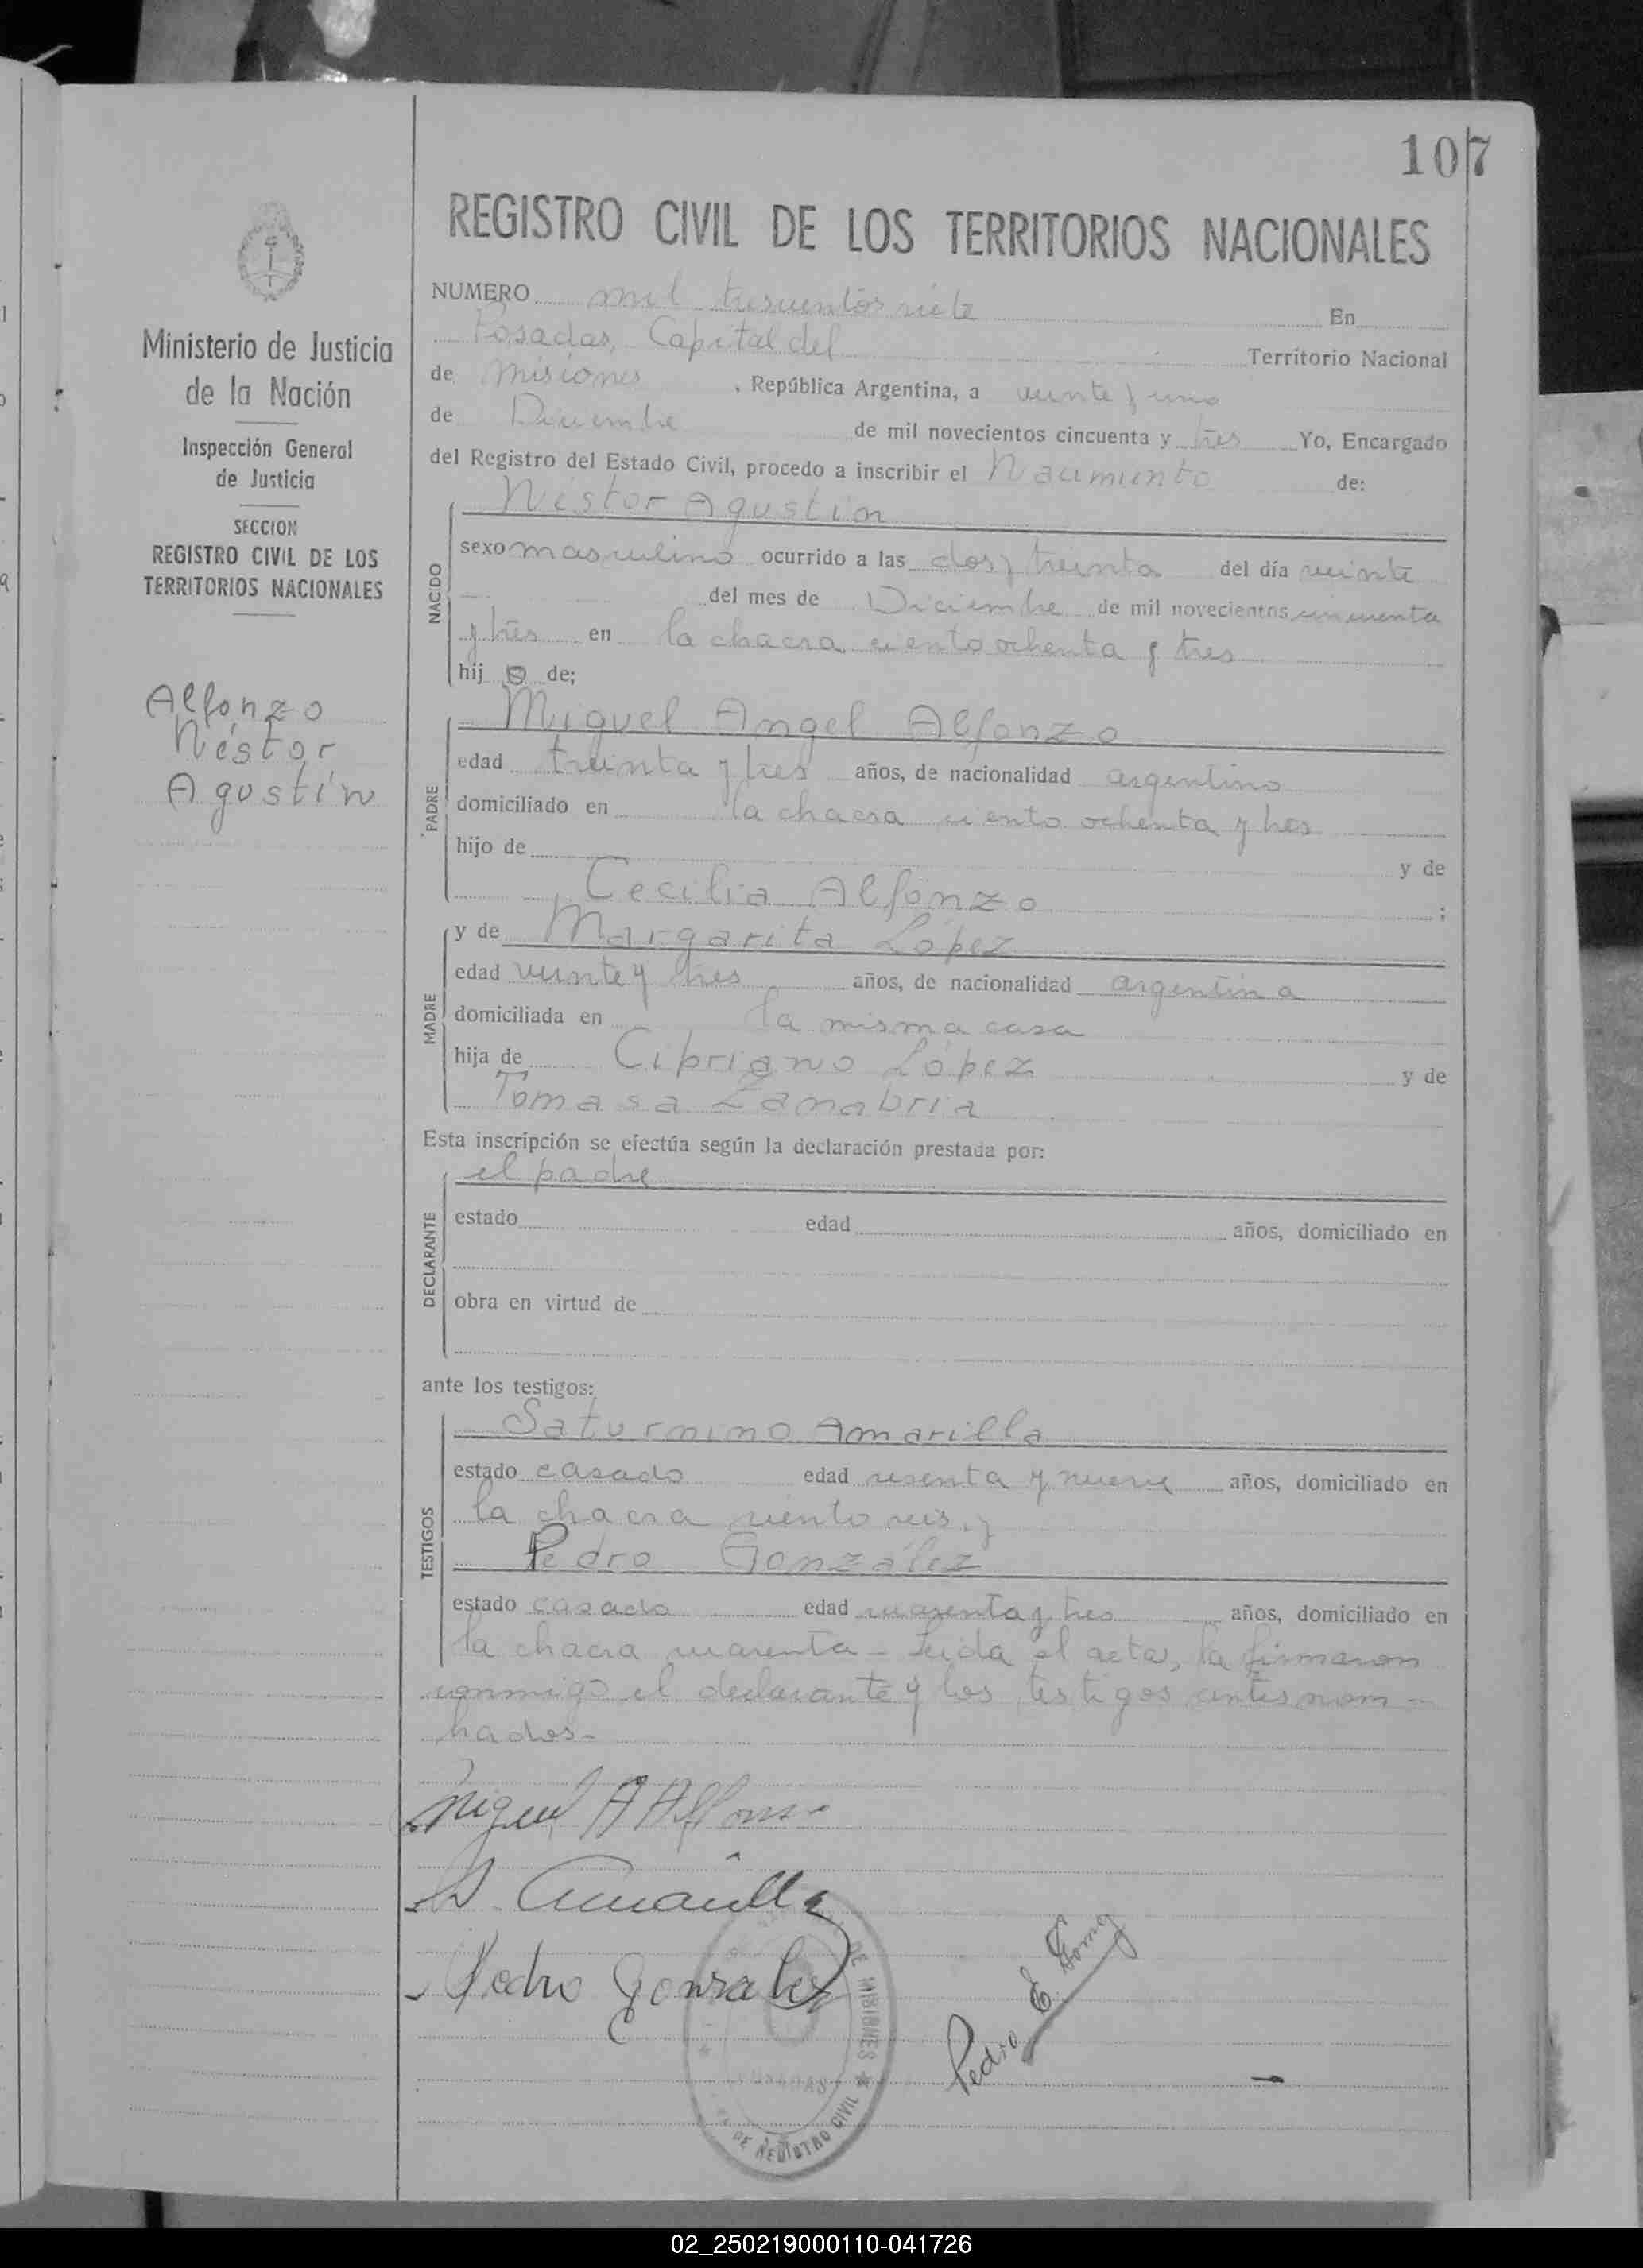 107
REGISTRO CIVIL DE LOS TERRITORIOS NACIONALES
Ministerio de Justicia
de la Nación
Inspección General
de Justicia
SECCION
REGISTRO CIVIL DE LOS
TERRITORIOS NACIONALES
Alfonzo
Néstor
Agustín
NUMERO mil trescientos siete En
Posadas, Capital del Territorio Nacional
de Misiones, República Argentina, a veinte y uno
de Diciembre de mil novecientos cincuenta y tres Yo, Encargado
del Registro del Estado Civil, procedo a inscribir el Nacimiento de:
Néstor Agustín
NACIDO
sexo masculino ocurrido a las dos y treinta del día veinte
del mes de Diciembre de mil novecientos cincuenta
y tres en la chacra ciento ochenta y tres
hijo de;
Miguel Angel Alfonzo
PADRE
edad treinta y tres años, de nacionalidad argentino
domiciliado en la chacra ciento ochenta y tres
hijo de y de
Cecilia Alfonzo ;
y de Margarita López
MADRE
edad veinte y tres años, de nacionalidad argentina
domiciliada en la misma casa
hija de Cipriano López y de
Tomasa Zanabria
Esta inscripción se efectúa según la declaración prestada por:
el padre
DECLARANTE
estado edad años, domiciliado en
obra en virtud de
ante los testigos:
Saturnino Amarilla
TESTIGOS
estado casado edad sesenta y nueve años, domiciliado en
la chacra ciento seis, y
Pedro González
estado casado edad cuarenta y tres años, domiciliado en
la chacra cuarenta - Leida el acta, la firmaron
conmigo el declarante y los testigos antes nom-
brados-
Miguel A Alfonso
S. Amarilla
Pedro Gonzalez
Pedro E. Gomez
DE MISIONES ★
POSADAS
DE REGISTRO CIVIL
02_250219000110-041726